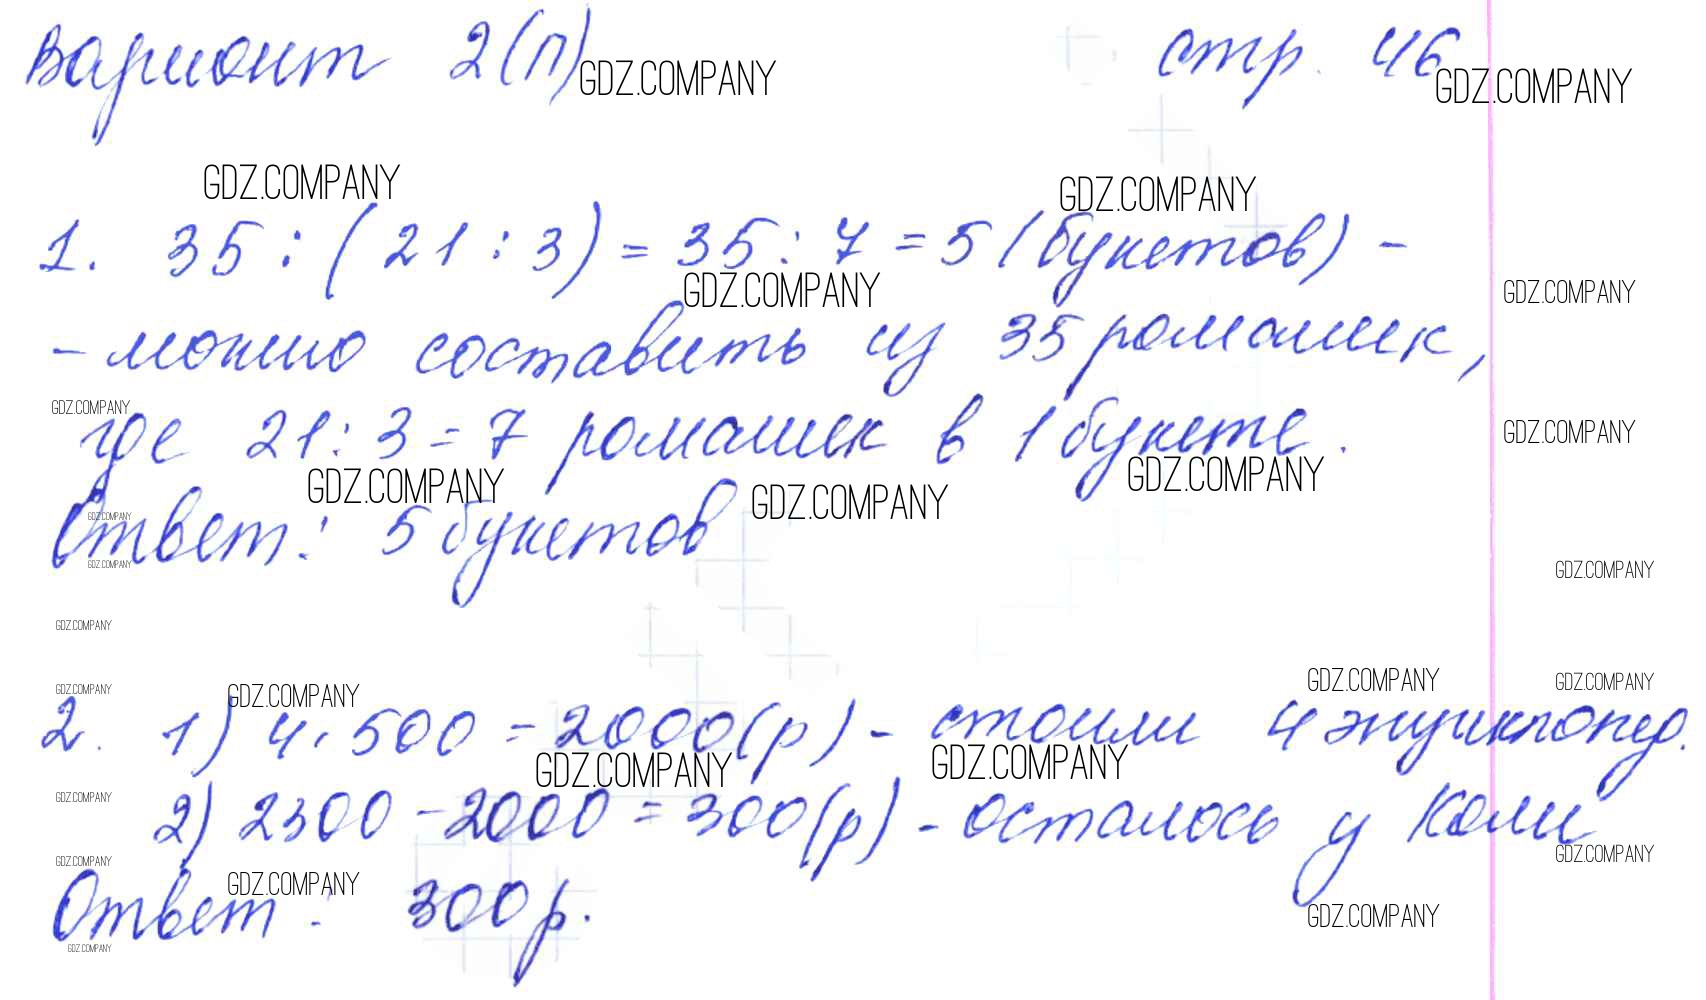 Вариант 2(П) GDZ.COMPANY стр. 46 GDZ.COMPANY
GDZ.COMPANY GDZ.COMPANY
1. 35 : (21 : 3) = 35 : 7 = 5 (букетов) -
GDZ.COMPANY GDZ.COMPANY
- можно составить из 35 ромашек,
GDZ.COMPANY
где 21 : 3 = 7 ромашек в 1 букете. GDZ.COMPANY
GDZ.COMPANY GDZ.COMPANY GDZ.COMPANY
GDZ.COMPANY
Ответ: 5 букетов
GDZ.COMPANY GDZ.COMPANY
GDZ.COMPANY
GDZ.COMPANY GDZ.COMPANY GDZ.COMPANY GDZ.COMPANY
2. 1) 4 · 500 = 2000 (р) - стоили 4 энциклопед.
GDZ.COMPANY GDZ.COMPANY
GDZ.COMPANY
2) 2300 - 2000 = 300 (р) - осталось у Коли
GDZ.COMPANY GDZ.COMPANY
GDZ.COMPANY
Ответ: 300 р.
GDZ.COMPANY
GDZ.COMPANY